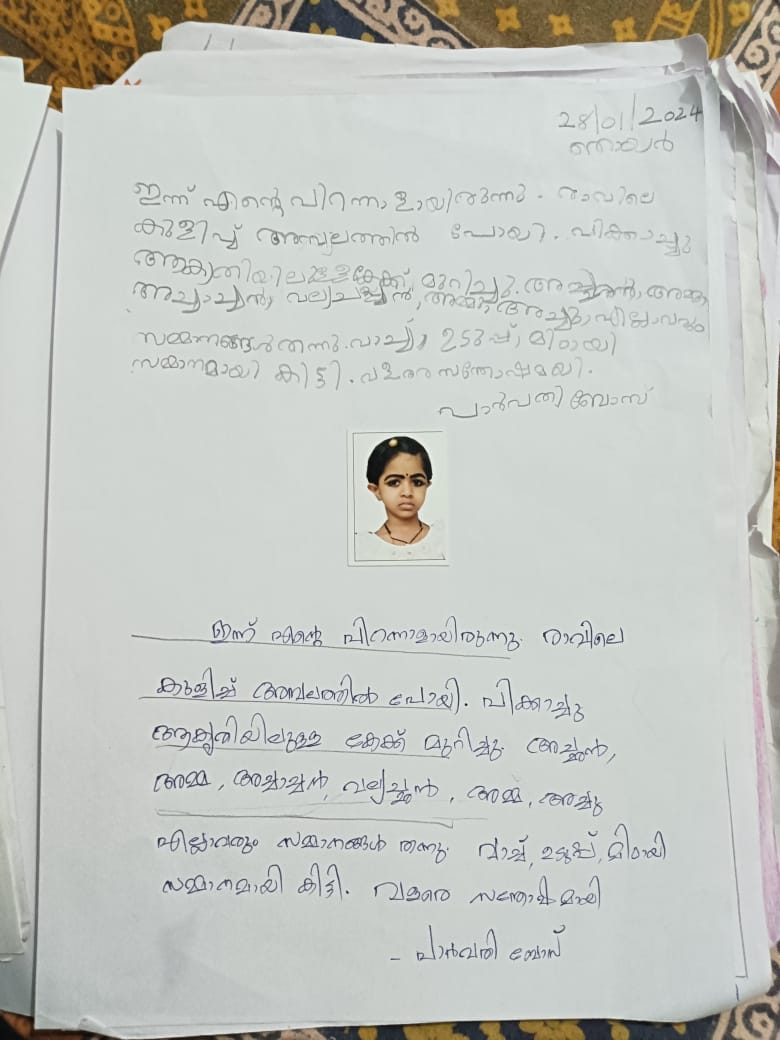 28/01/2024
ഞായർ
ഇന്ന് എന്റെ പിറന്നാളായിരുന്നു. രാവിലെ
കുളിച്ച് അമ്പലത്തിൽ പോയി. പിക്കാച്ചു
ആകൃതിയിലുള്ള കേക്ക് മുറിച്ചു. അച്ഛൻ, അമ്മ
അച്ചാച്ചൻ, വല്യച്ഛൻ, അമ്മ, അച്ചു, എല്ലാവരും
സമ്മനങ്ങൾ തന്നു. വാച്ച്, ഉടുപ്പ്, മിഠായി
സമ്മാനമായി കിട്ടി. വളരെ സന്തോഷമയി.
പാർവതി ബോസ്
ഇന്ന് എന്റെ പിറന്നാളായിരുന്നു. രാവിലെ
കുളിച്ച് അമ്പലത്തിൽ പോയി. പിക്കാച്ചു
ആകൃതിയിലുള്ള കേക്ക് മുറിച്ചു. അച്ഛൻ,
അമ്മ, അച്ചാച്ചൻ, വല്യച്ഛൻ, അമ്മ, അച്ചു
എല്ലാവരും സമ്മാനങ്ങൾ തന്നു. വാച്ച്, ഉടുപ്പ്, മിഠായി
സമ്മാനമായി കിട്ടി. വളരെ സന്തോഷമായി
- പാർവതി ബോസ്